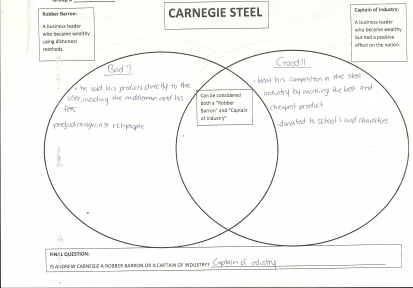 Group's
CARNEGIE STEEL
Robber Barron:
A business leader
who became wealthy
using dishonest
methods.
Captain of Industry:
A business leader
who became wealthy
but had a positive
effect on the nation.
Bad!!
• he sold his products directly to the
user, avoiding the middleman and his
fees
• prejudice against rich people
Can be considered
both a "Robber
Barron" and "Captain
of Industry"
Good!!
• beat his competition in the steel
industry by making the best and
cheapest product
• donated to school's and charities
FINAL QUESTION:
IS ANDREW CARNEGIE A ROBBER BARRON OR A CAPTAIN OF INDUSTRY? Captain of industry